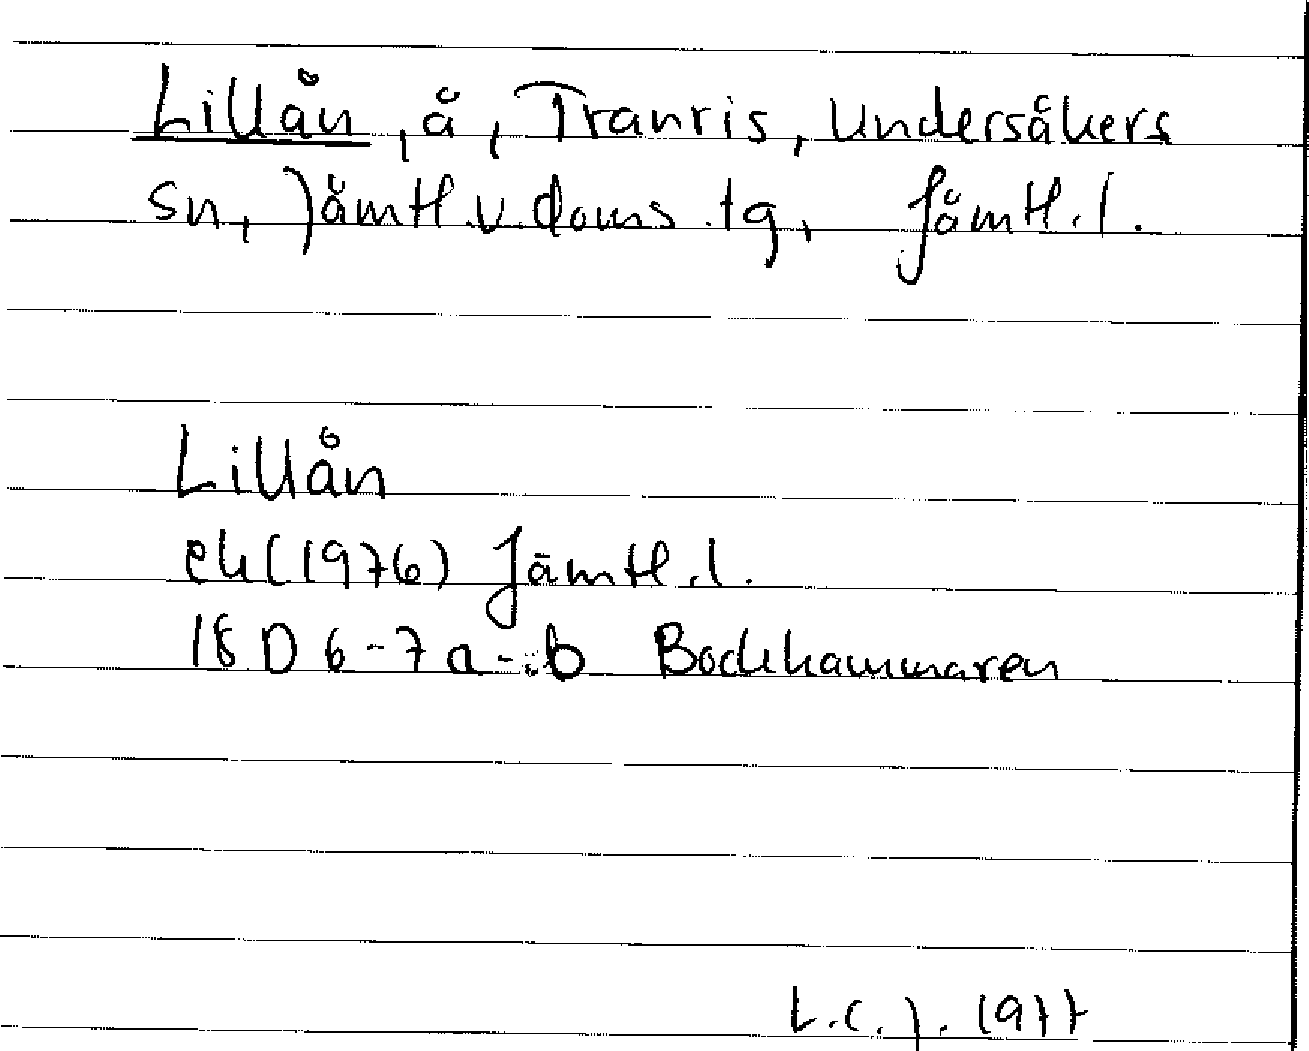 Lillån, å, Tranris, Undersåkers
sn, Jämtl.v.doms.tg, Jämtl.l.
Lillån
ek(1976) Jämtl.l.
18 D 6-7 a-b Bockhammaren
L.C.J. 1977